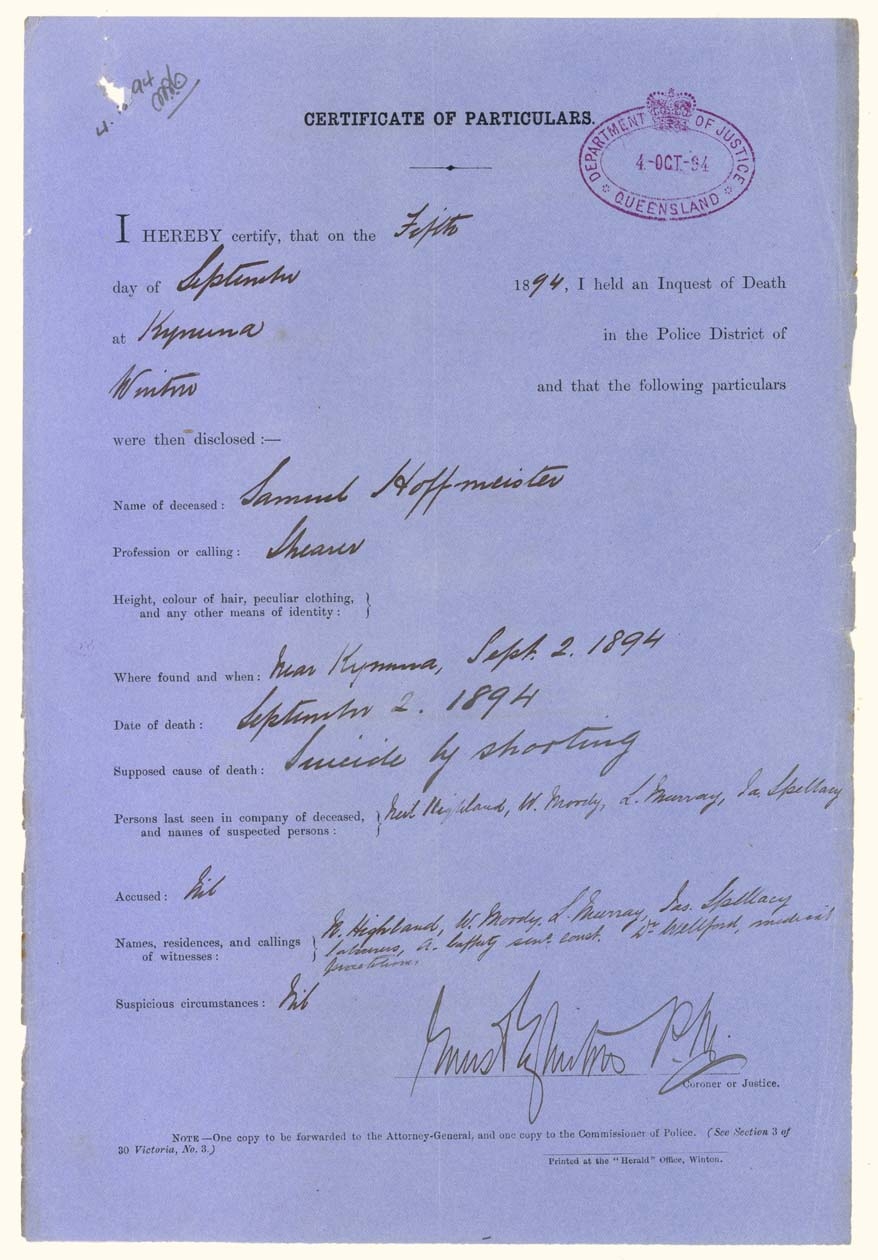 4. 10. 94
CERTIFICATE OF PARTICULARS.
DEPARTMENT OF JUSTICE
4-OCT-94
QUEENSLAND
I HEREBY certify, that on the Fifth
day of September 1894, I held an Inquest of Death
at Kynuna in the Police District of
Winton and that the following particulars
were then disclosed :—
Name of deceased : Samuel Hoffmeister
Profession or calling : Shearer
Height, colour of hair, peculiar clothing,
and any other means of identity :
Where found and when : Near Kynuna, Sept. 2. 1894
Date of death : September 2. 1894
Supposed cause of death : Suicide by shooting
Persons last seen in company of deceased, Neil Highland, W. Moody, L. Murray, Jas. Spellacy
and names of suspected persons :
Accused : Nil
N. Highland, W. Moody. L. Murray, Jas. Spellacy
Names, residences, and callings labourers, A. Lafferty senr. const. Dr. Wellford, medical
of witnesses : practitioner.
Suspicious circumstances : Nil
Ernest P.M.
Coroner or Justice.
NOTE —One copy to be forwarded to the Attorney-General, and one copy to the Commissioner of Police. (See Section 3 of
30 Victoria, No. 3.)
Printed at the "Herald" Office, Winton.